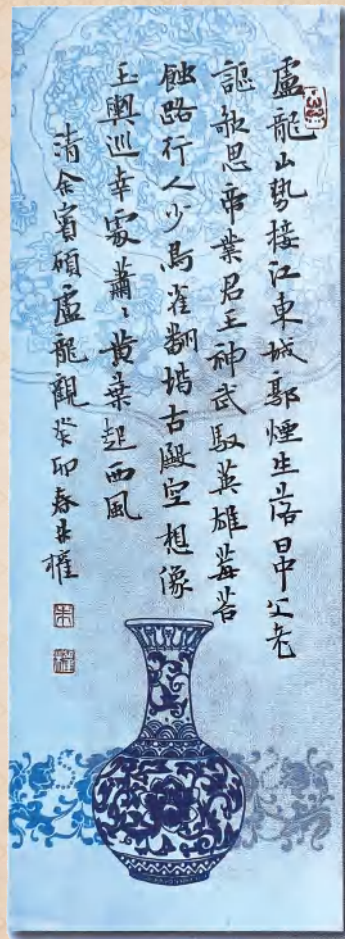 盧龍山勢接江東城郭煙生落日中父老
謳歌思帝業君王神武馭英雄莓苔
蝕路行人少鳥雀翻堦古殿空想像
玉輿巡幸處蕭〻黄葉起西風
清余賓碩盧龍觀癸卯春朱權
朱